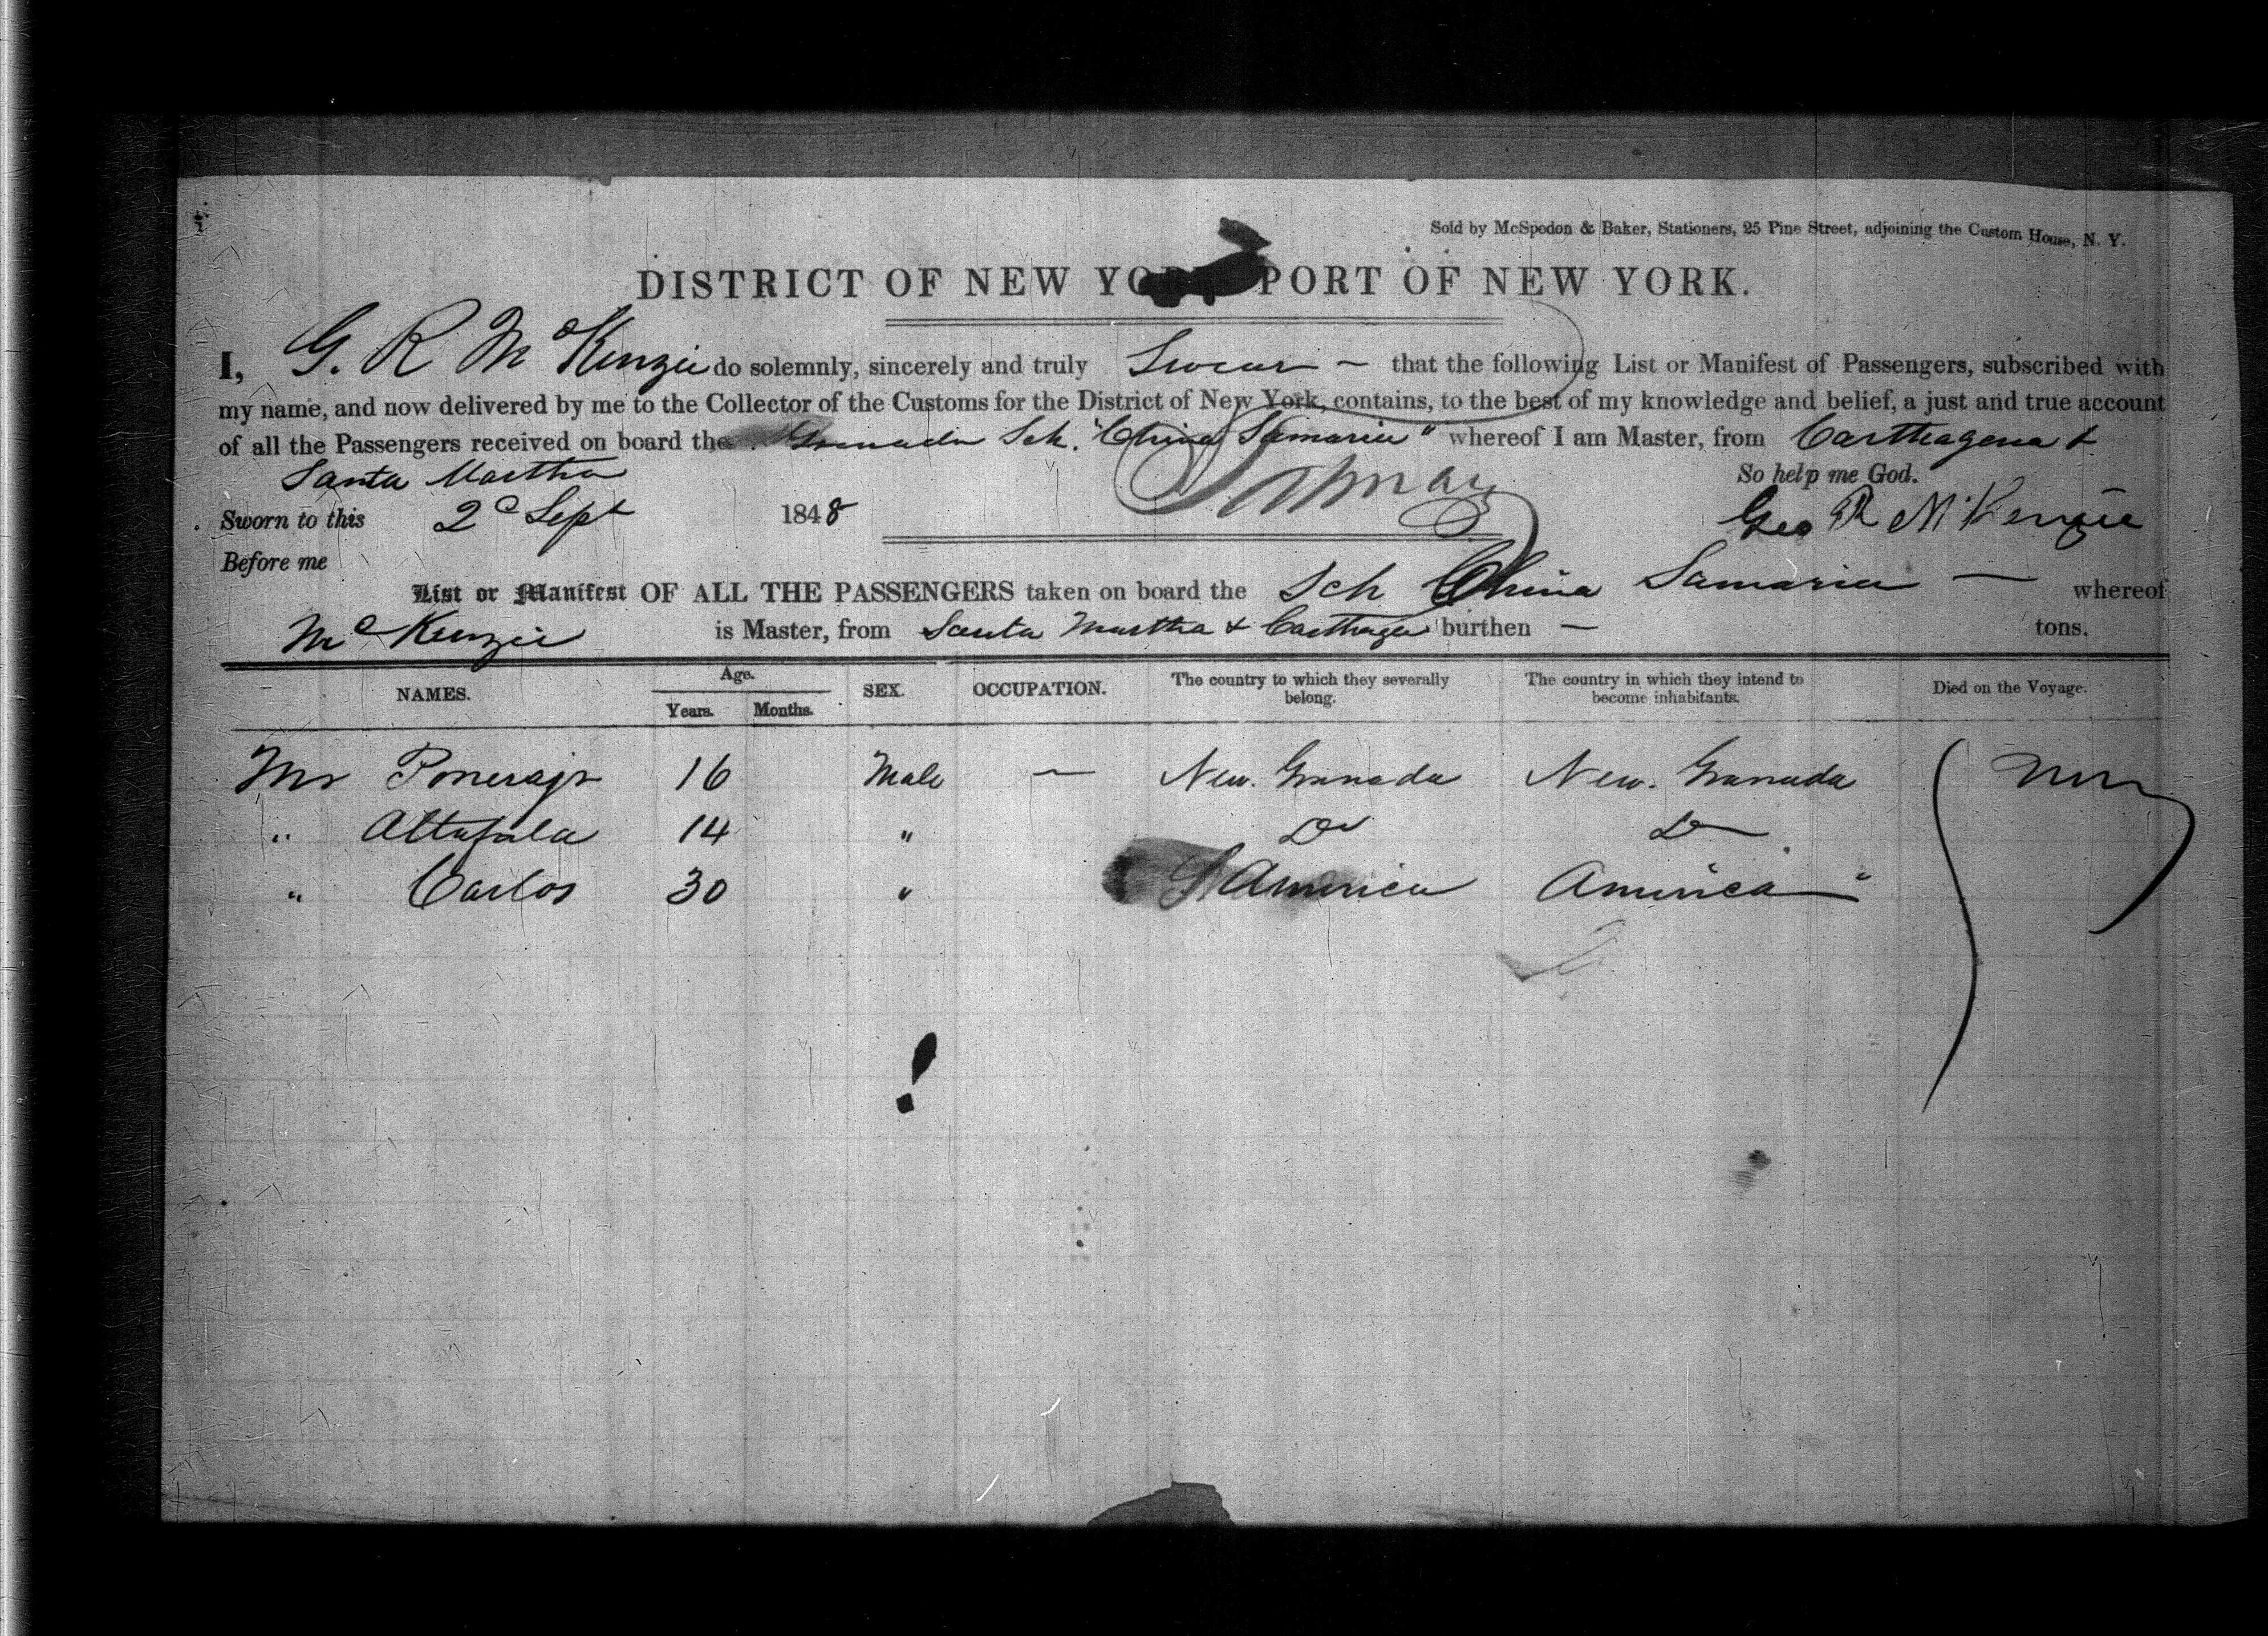 Sold by McSpedon & Baker, Stationers, 25 Pine Street, adjoining the Custom House, N. Y.
DISTRICT OF NEW YORK PORT OF NEW YORK.
I, G. R Mc Kenzie do solemnly, sincerely and truly Swear – that the following List or Manifest of Passengers, subscribed with
my name, and now delivered by me to the Collector of the Customs for the District of New York, contains, to the best of my knowledge and belief, a just and true account
of all the Passengers received on board the Granada Sch. "China Samaria" whereof I am Master, from Carthagena &
Santa Martha So help me God.
Sworn to this 2d Sept 1848 Geo R McKenzie
Before me
List or Manifest OF ALL THE PASSENGERS taken on board the Sch China Samaria — whereof
Mc Kenzie is Master, from Santa Martha & Carthagena burthen — tons.
NAMES. Age. Years. Months. SEX. OCCUPATION. The country to which they severally belong. The country in which they intend to become inhabitants. Died on the Voyage.
Mr 16 Male — New. Granada New. Granada
" 14 " Do Do
" Carlos 30 " S America America